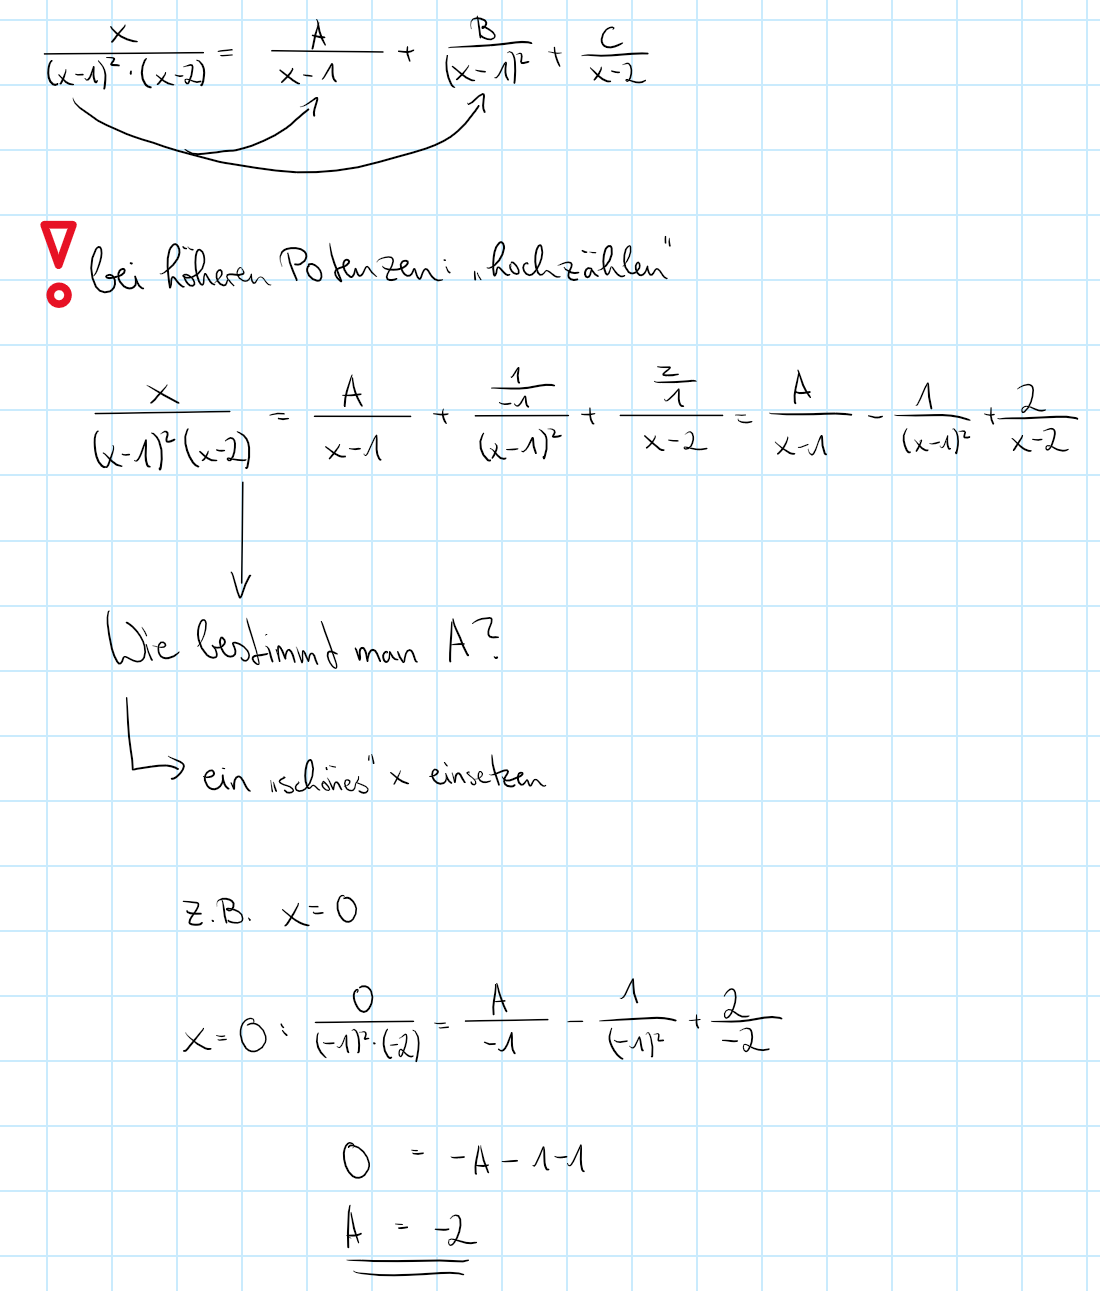 x/((x-1)²·(x-2)) = A/(x-1) + B/(x-1)² + C/(x-2)
! bei höheren Potenzen: „hochzählen"
x/((x-1)²(x-2)) = A/(x-1) + (1/-1)/(x-1)² + (2/1)/(x-2) = A/(x-1) - 1/(x-1)² + 2/(x-2)
Wie bestimmt man A?
ein „schönes" x einsetzen
z.B. x=0
x=0: 0/((-1)²·(-2)) = A/-1 - 1/(-1)² + 2/-2
0 = -A-1-1
A = -2